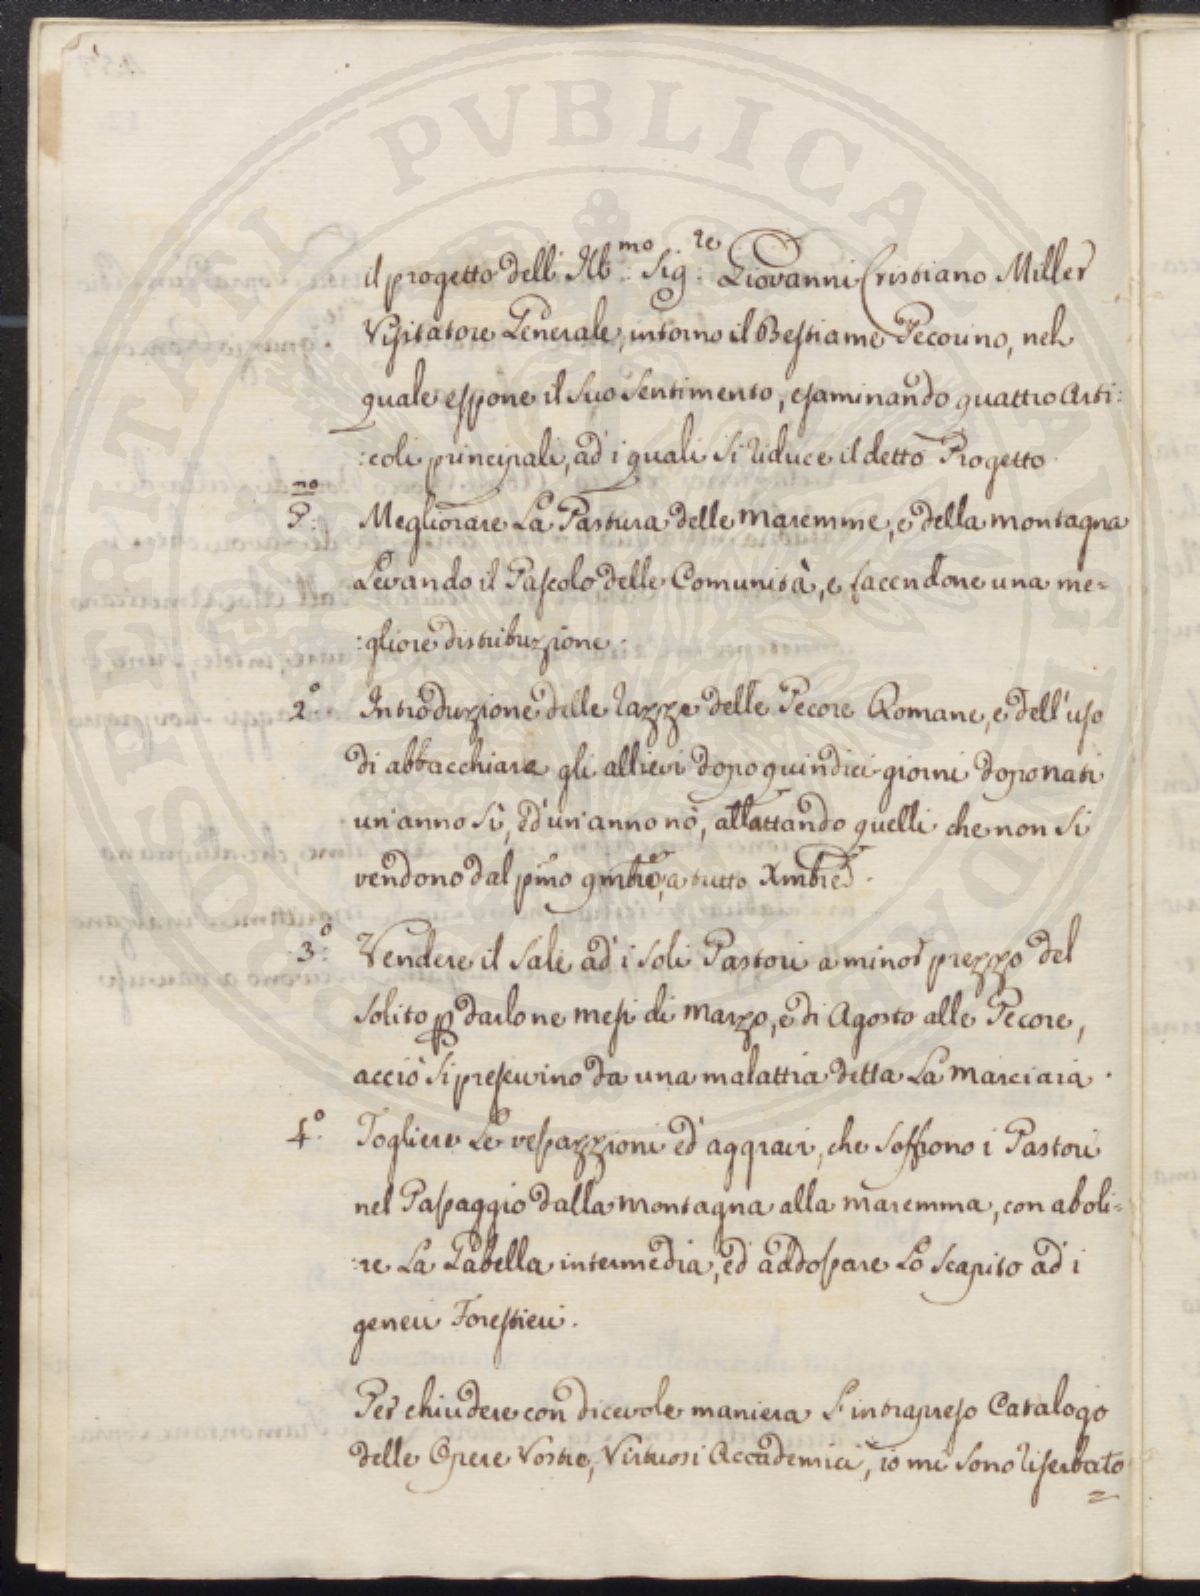 PROSPERITATI PVBLICAE AVGENDAE
il progetto dell' Ill:mo Sig:re Giovanni Cristiano Miller
Visitatore Generale, intorno il Bestiame Pecorino, nel
quale espone il suo sentimento, esaminando quattro Arti:
:coli principali, ad' i quali si riduce il detto Progetto.
P:mo Megliorare La Pastura delle maremme, e della montagna
Levando il Pascolo delle Comunità, e facendone una me=
:gliore distribuzione.
2:o Introduzione delle razze delle Pecore Romane, e dell' uso
di abbacchiare gli allievi dopo quindici giorni dopo nati
un' anno sì, ed' un' anno nò, allattando quelli che non si
vendono dal pmo 9mbre, a tutto Xmbre.
3:o Vendere il sale ad' i soli Pastori a minor prezzo del
solito p darlo ne mesi di marzo, e di Agosto alle Pecore,
acciò si preservino da una malattia detta La marciaia.
4:o Togliere Le vessazzioni ed' aggravi, che soffrono i Pastori
nel Passaggio dalla montagna alla maremma, con aboli=
:re La Gabella intermedia, ed addossare Lo scapito ad' i
generi Forestieri.
Per chiudere con dicevole maniera L' intrapreso Catalogo
delle Opere Vostre, Virtuosi Accademici, io mi sono riserbato